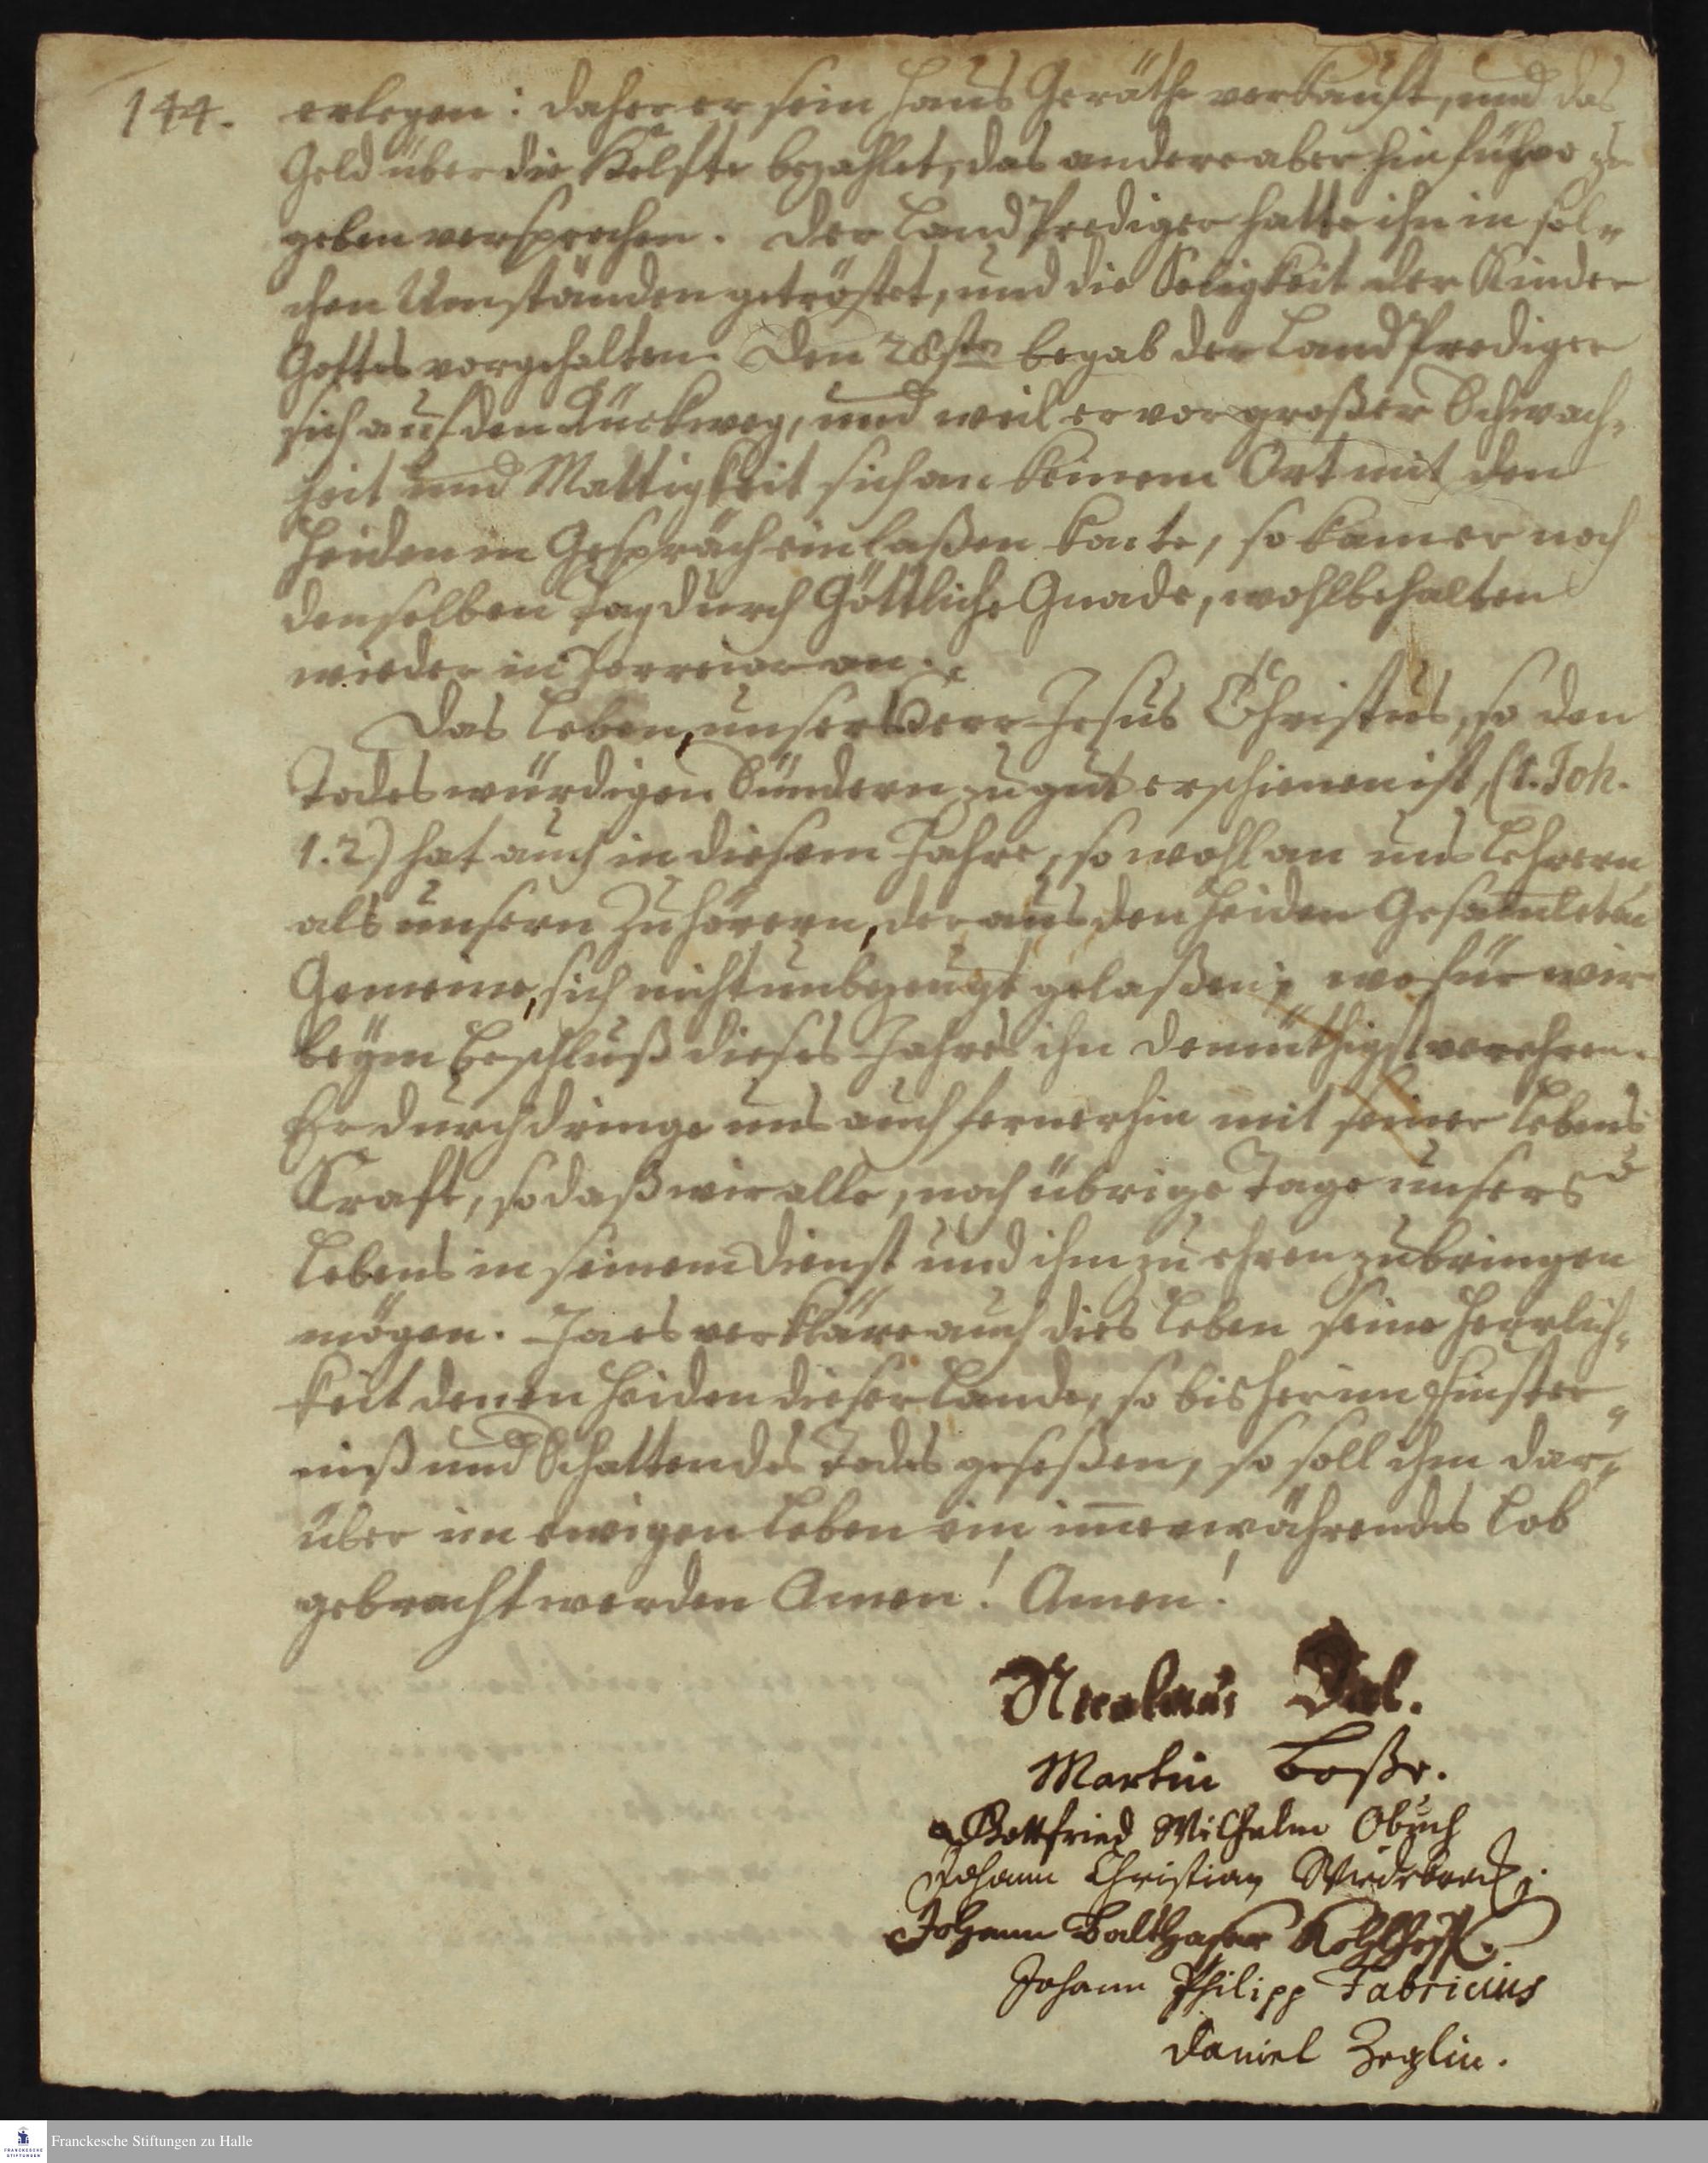 144. erlegen: daher er sein Haus Geräthe verkauft, und das
Geld über die Helfte bezahlet, das andere aber hinführo zu
geben versprochen. Der Land Prediger hatte ihn in sol„
chen Umständen getröstet, und die Seligkeit der Kinder
Gottes vorgehalten. Den 28sten begab der Land Prediger
sich auf den Rückweg, und weil er vor großer Schwach„
heit und Mattigkeit sich an keinem Ort mit den
Heiden in Gespräch einlaßen konte, so kam er noch
denselben Tag durch Göttliche Gnade, wohlbehalten
wieder in Poreiar an.
Das Leben, unser Herr Jesus Christus, so den
Todes würdigen Sündern zu gut erschienen ist, (1. Joh.
1.2) hat auch in diesem Jahre, so wohl an uns Lehrern
als unsern Zuhörern, der aus den Heiden Gesamleten
Gemeine, sich nicht unbezeugt gelaßen; wofür wir
beym Beschluß dieses Jahres ihn demüthigst verehren.
Er durchdringe uns auch fernerhin mit seiner Lebens
Kraft, so daß wir alle, noch übrige Tage unsers
Lebens in seinem Dienst und ihm zu ehren zubringen
mögen. Ja es verkläre auch dies Leben seine Herrlich„
keit denen Heiden dieser Lande, so bisher im Finster„
niß und Schatten des Todes geseßen, so soll ihm dar„
über im ewigen Leben ein im̅erwährendes Lob
gebracht werden Amen! Amen!
Nicolaus Dal.
Martin Boße.
Gottfried Wilhelm Obuch
Johann Christian Wiedebrock.
Johann Balthasar Kohlhoff.
Johann Philipp Fabricius
Daniel Zeglin.
FRANCKESCHE STIFTUNGEN
Franckesche Stiftungen zu Halle